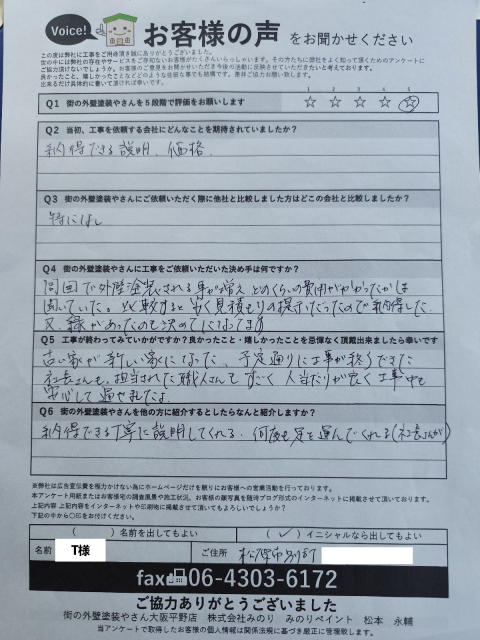 Voice! お客様の声 をお聞かせください
この度は弊社に工事をご用命頂き誠にありがとうございました。
街の中には弊社の存在やサービスをご存知ないお客様がたくさんいらっしゃいます。その方たちに弊社をよく知って頂くためのアンケートに
ご協力頂けないでしょうか。お客様のご意見をお聞かせいただき今後の活動に反映させていただきたいと考えております。
良かったこと、嬉しかったことなどどのような些細な事でも結構です。是非ご協力お願い致します。
出来るだけ具体的に書いて頂ければ幸いです。
Q1 街の外壁塗装やさんを5段階で評価をお願いします
1 2 3 4 5
☆ ☆ ☆ ☆ ☆
Q2 当初、工事を依頼する会社にどんなことを期待されていましたか?
納得できる説明、価格、
Q3 街の外壁塗装やさんにご依頼いただく際に他社と比較しました方はどこの会社と比較しましたか?
特になし
Q4 街の外壁塗装やさんに工事をご依頼いただいた決め手は何ですか?
周囲で外壁塗装される事が増え どのくらいの費用がかかったかは
聞いていた。比較すると 安く見積もりの提示だったので納得した。
又、縁があったのも決めてになってます
Q5 工事が終わってみていかがですか?良かったこと・嬉しかったことを忌憚なく頂戴出来ましたら幸いです
古い家が新しい家になった、予定通りに工事が終了できた
社長さんも、担当された職人さんも すごく 人当たりが良く工事中も
安心して過せましたよ
Q6 街の外壁塗装やさんを他の方に紹介するとしたらなんと紹介しますか?
納得できる丁寧に説明してくれる、何度も足を運んでくれる(社長さんが)
※弊社は広告宣伝費を極力かけない為にホームページだけを頼りにお客様への営業活動を行っております。
本アンケート用紙またはお客様宅の調査風景や施工状況、お客様の顔写真を随時ブログ形式のインターネットに掲載させて頂いております。
上記内容 上記内容をインターネットや印刷物に掲載させて頂いてもよろしいでしょうか?
下記の中から〇印をお付けください。
( ) 名前を出してもよい ( ✓ ) イニシャルなら出してもよい
名前 T様 ご住所 松原市別所町
fax 06-4303-6172
ご協力ありがとうございました
街の外壁塗装やさん大阪平野店 株式会社みのり みのりペイント 松本 永輔
当アンケートで取得したお客様の個人情報は関係法規に基づき厳正に管理致します。